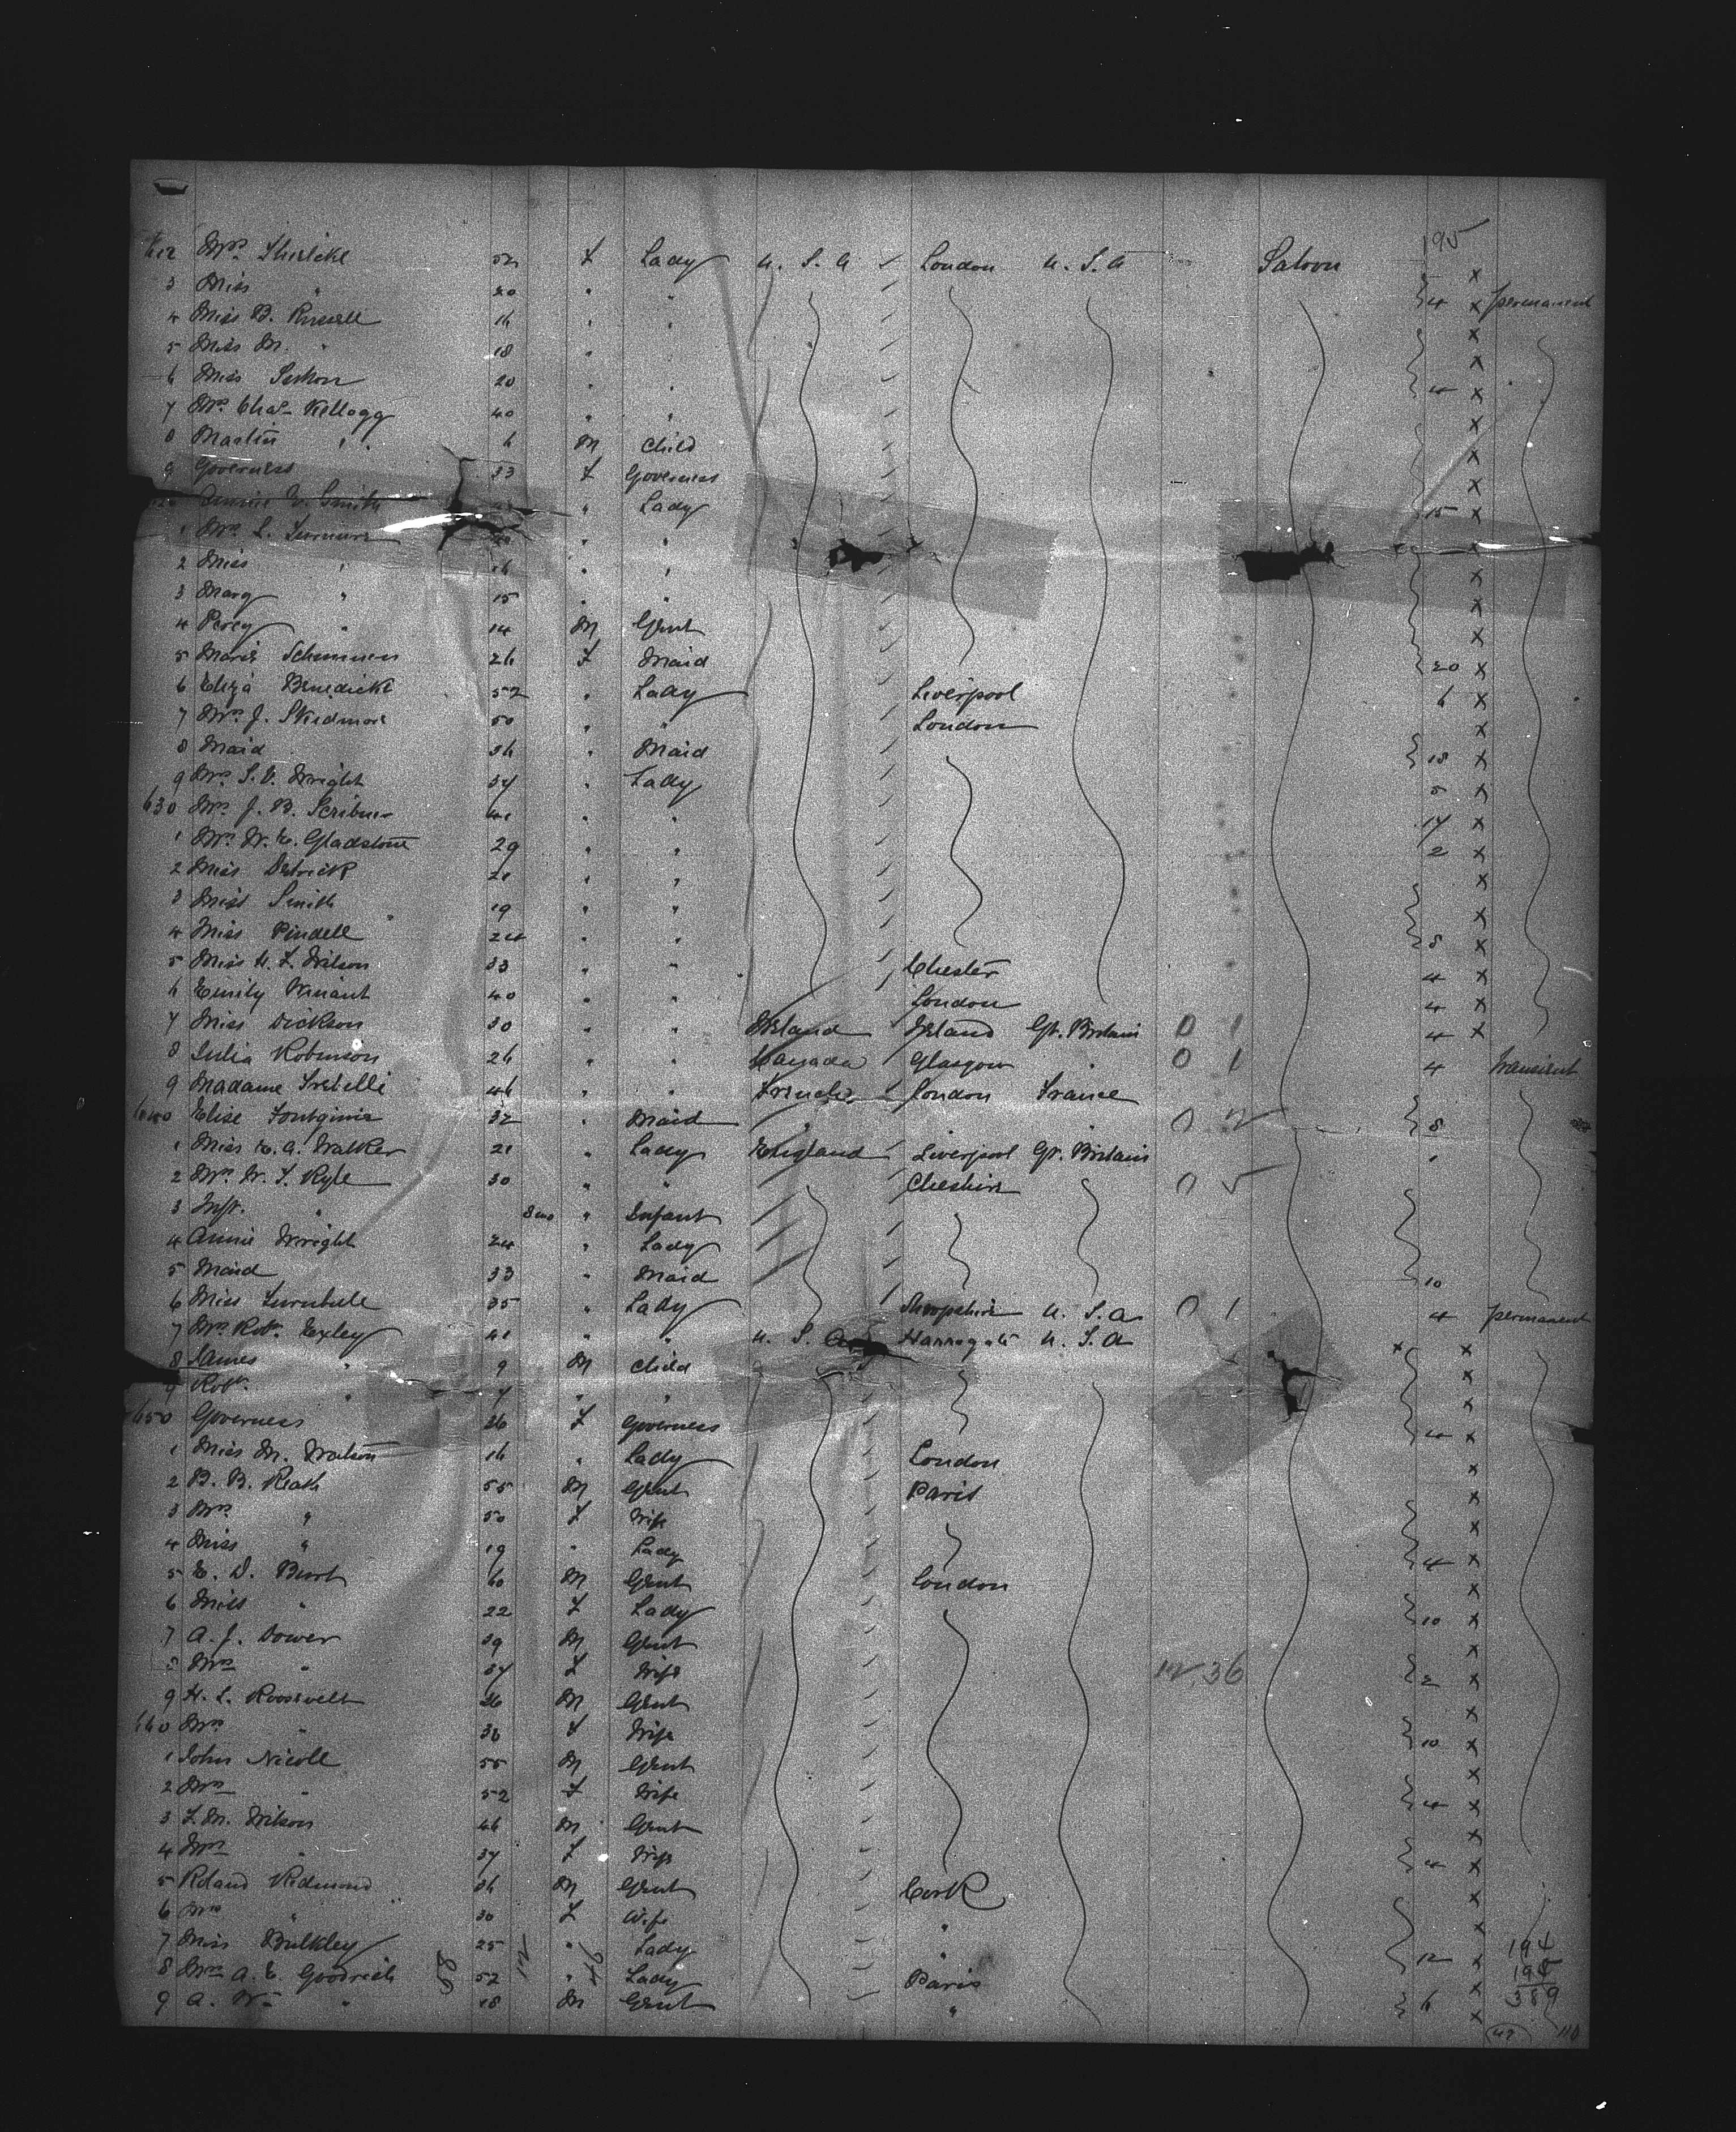 195
612 Mrs. Shirlike 52 F Lady U. S. A London U. S. A Saloon
3 Miss " 20 " " 4 x permanent
4 Miss B. Russell 16 " " x
5 Miss M. " 18 " x
6 Miss 20 " " 4 x
7 Mrs. Chas. Kellogg 40 " " x
8 Martin " 6 M Child x
9 Governess 33 F Governess x
620 Annie E. Smith " Lady 15 x
1 Mrs. L. " " x
2 Miss " 16 " " x
3 Mary " 15 " " x
4 Percy " 14 M Gent x
5 Marie 26 F Maid 20 x
6 Eliza Benedickt 52 " Lady Liverpool 6 x
7 Mrs. J. Skidmore 50 " " London x
8 Maid 36 " Maid 18 x
9 Mrs. S. V. Wright 37 " Lady 5 x
630 Mrs. J. B. Scribner 41 " " 14 x
1 Mrs. W. E. Gladstone 29 " " 2 x
2 Miss Detrick 21 " " x
3 Miss Smith 19 " " x
4 Miss Pindell 24 " " 8 x
5 Miss H. L. Wilson 33 " " Chester 4 x
6 Emily Winant 40 " " London 4 x
7 Miss Dickson 30 " " Ireland Ireland Gt. Britain 0 1 4 x
8 Julia Robinson 26 " " Canada Glasgow 0 1 4 transient
9 Madame Trebelli 46 " " French London France
640 Elise 32 " Maid " " 0 2 8
1 Miss E. A. Walker 21 " Lady England Liverpool Gt. Britain 1
2 Mrs. W. T. Ryle 30 " " Cheshire 0 5
3 Inft. " 8 mo " Infant
4 Annie Wright 24 " Lady
5 Maid 33 " Maid 10
6 Miss Turnbull 35 " Lady Shropshire U. S. A 0 1 4 permanent
7 Mrs. Robt. Exley 41 " " U. S. A Harrogate U. S. A x x
8 James " 9 M Child x
9 Robt. " 7 " " x
650 Governess 26 F Governess 4 x
1 Miss M. Watson 16 " Lady London x
2 B. B. Reath 55 M Gent Paris x
3 Mrs " 50 F Wife x
4 Miss " 19 " Lady 4 x
5 E. D. 60 M Gent London x
6 Miss " 22 F Lady 10 x
7 A. J. Dower 39 M Gent x
8 Mrs " 37 F Wife 12 36 2 x
9 H. L. Roosevelt 36 M Gent x
660 Mrs " 36 F Wife 10 x
1 John Nicoll 55 M Gent x
2 Mrs " 52 F Wife 4 x
3 L. M. Wilson 46 M Gent x
4 Mrs " 37 F Wife 4 x
5 Roland Redmond 36 M Gent Cork x
6 Mrs " 30 F Wife " x
7 Miss Bulkley 25 " Lady " 12 x 194
8 Mrs A. E. Goodrich 58 52 12 " 46 Lady Paris x 195
9 A. W. " 18 M Gent " 6 x 389
47 110